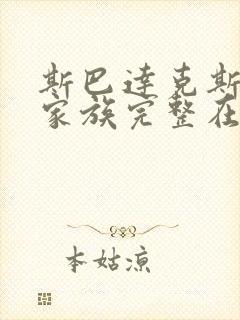 斯巴达克斯
家族完整在
本姑凉